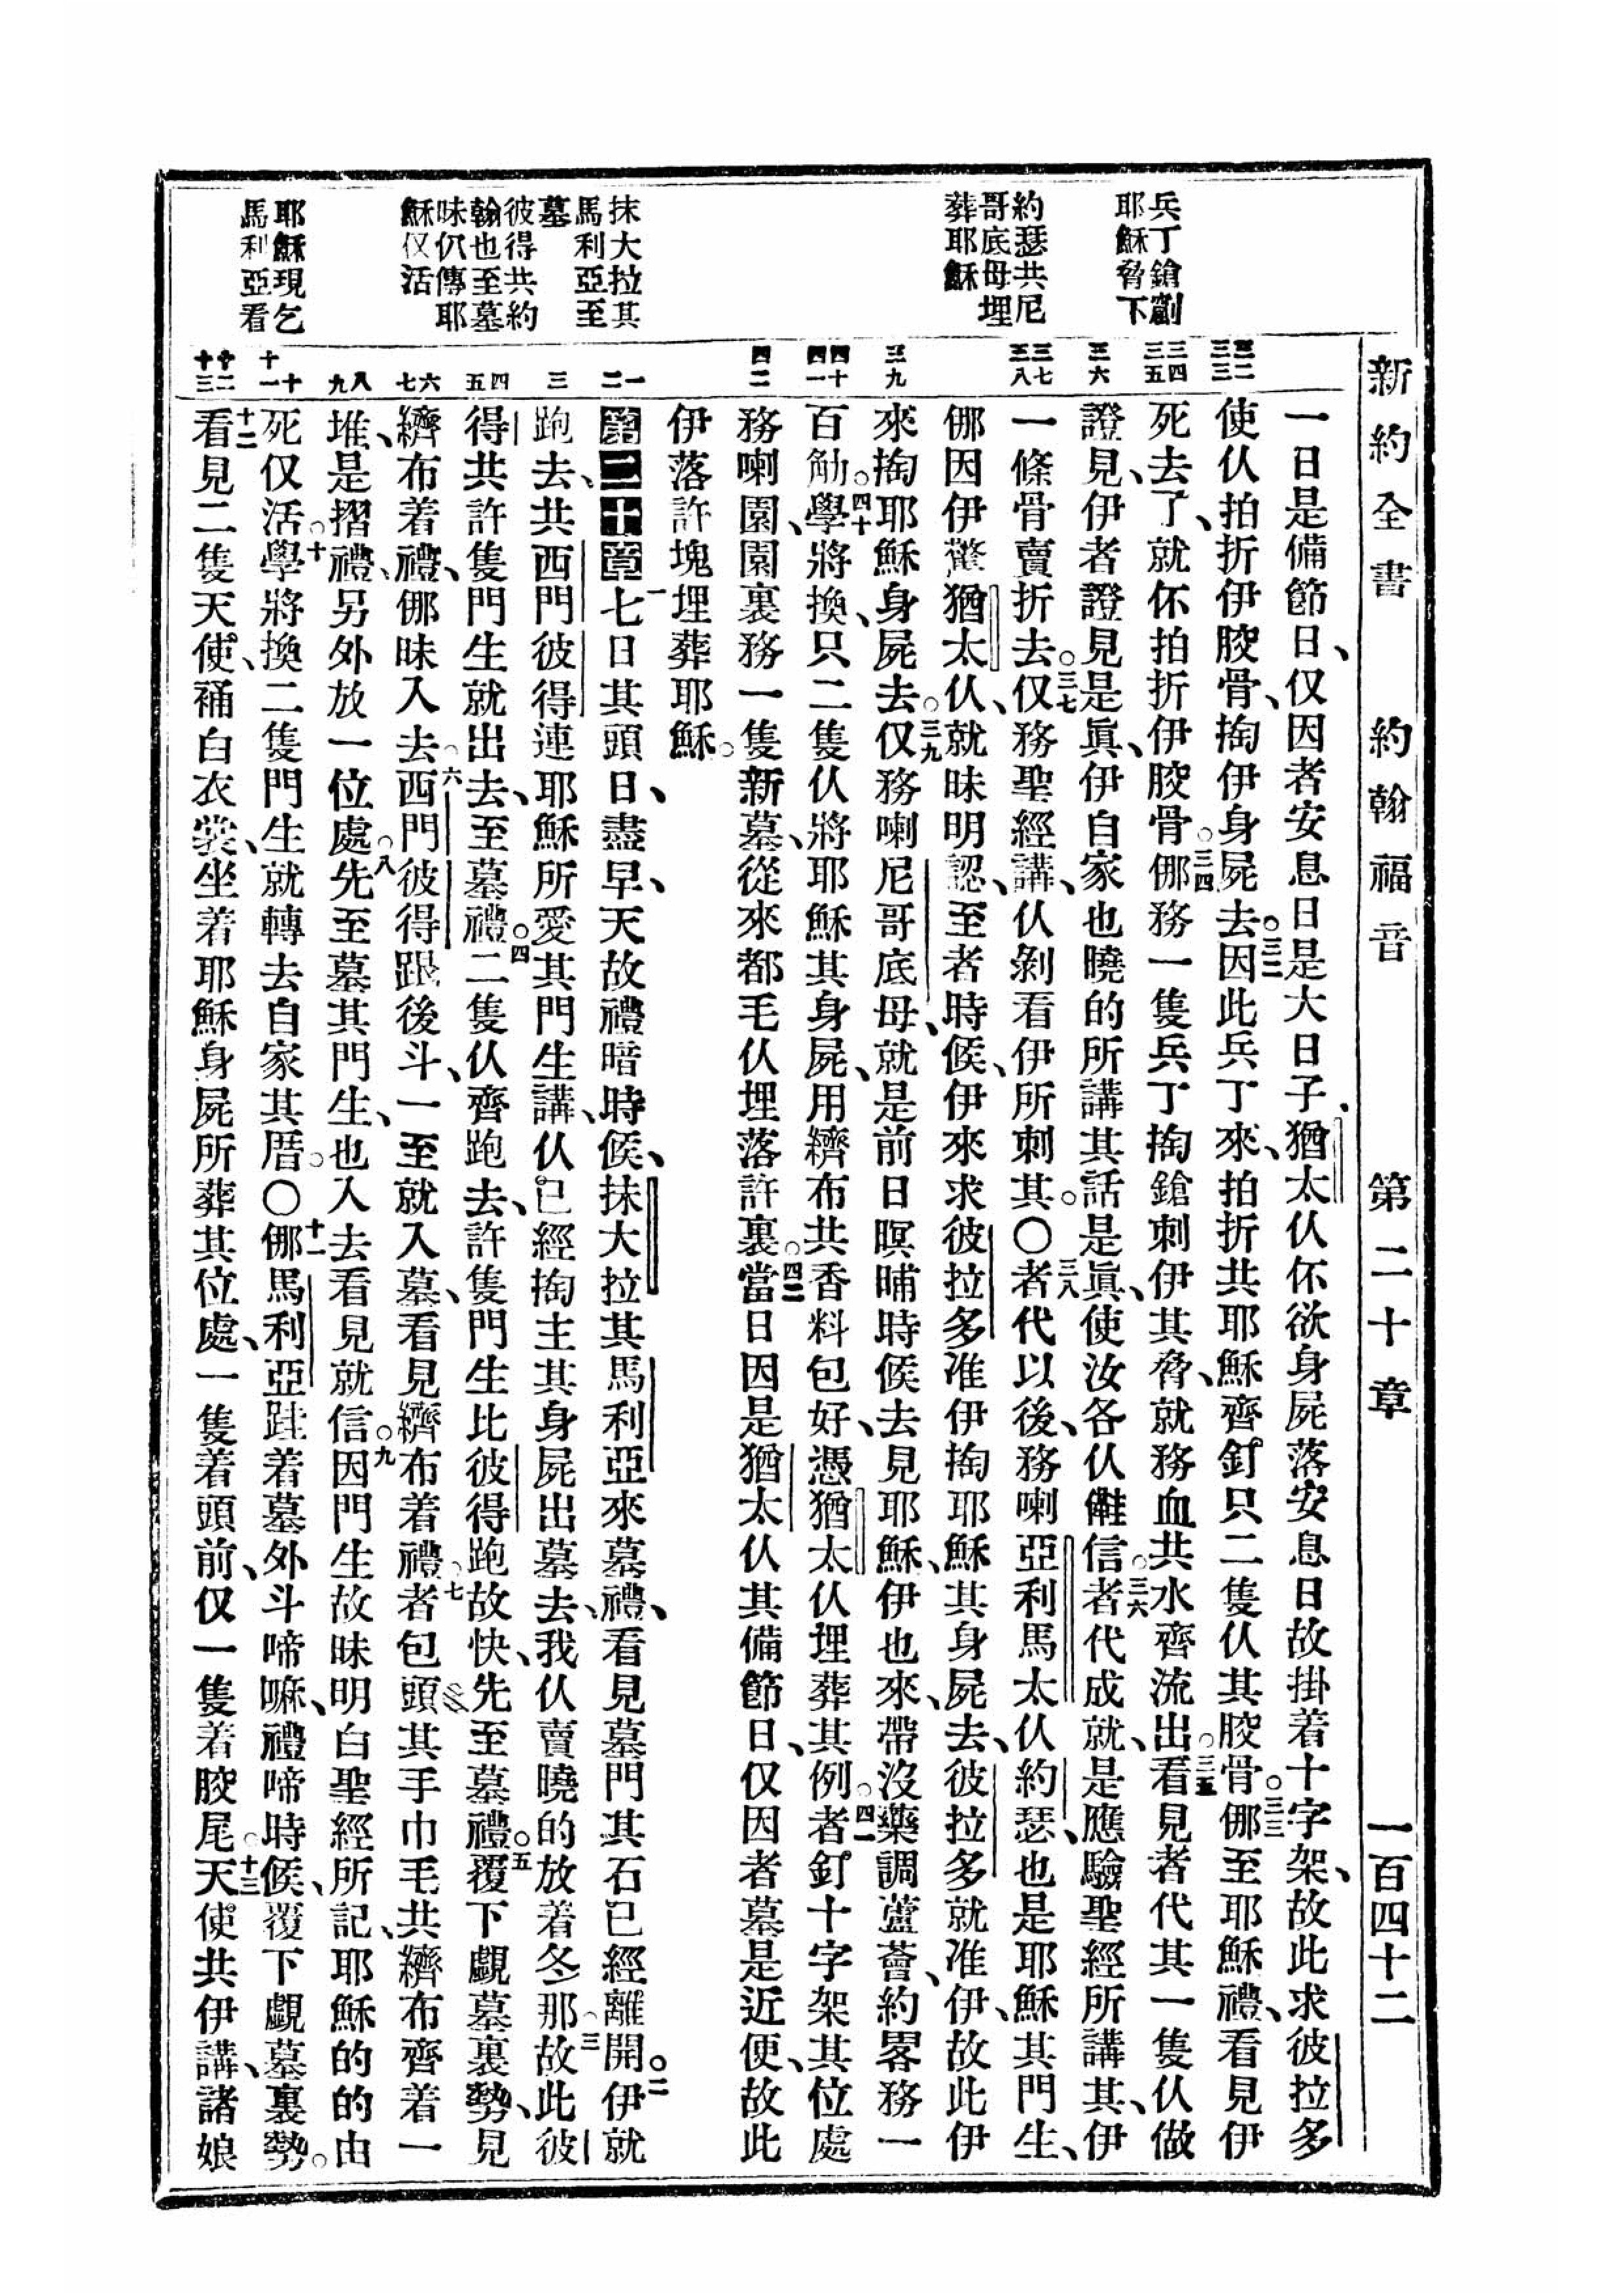 新約全書 約翰福音 第二十章 一百四十二
兵丁鎗劏
耶穌脅下
約瑟共尼
哥底母埋
葬耶穌
抹大拉其
馬利亞至
墓
彼得共約
翰也至墓
味仍傳耶
穌仅活
耶穌現乞
馬利亞看
一日是備節日、仅因者安息日是大日子、猶太仈伓欲身屍落安息日故掛着十字架、故此求彼拉多
使仈拍折伊骹骨、掏伊身屍去。三二因此兵丁來、拍折共耶穌齊釘只二隻仈其骹骨。三三倻至耶穌禮、看見伊
死去了、就伓拍折伊骹骨。三四倻務一隻兵丁掏鎗刺伊其脅、就務血共水齊流出。三五看見者代其一隻仈做
證見、伊者證見是眞、伊自家也曉的所講其話是眞、使汝各仈信。三六者代成就、是應驗聖經所講其、伊
一條骨賣折去。三七仅務聖經講、仈剝看伊所刺其。〇三八者代以後、務喇亞利馬太仈約瑟、也是耶穌其門生、
倻因伊驚猶太仈、就昧明認、至者時候、伊來求彼拉多准伊掏耶穌其身屍去、彼拉多就准伊、故此伊
來掏耶穌身屍去。三九仅務喇尼哥底母、就是前日暝晡時候去見耶穌、伊也來、帶沒藥調蘆薈、約畧務一
百觔。四十學將換、只二隻仈將耶穌其身屍、用纃布共香料包好、憑猶太仈埋葬其例。四一者釘十字架其位處
務喇園、園裏務一隻新墓、從來都毛仈埋落許裏。四二當日因是猶太仈其備節日、仅因者墓是近便、故此
伊落許塊埋葬耶穌。
第二十章 一七日其頭日、盡早、天故禮暗時候、抹大拉其馬利亞來墓禮、看見墓門其石已經離開。二伊就
跑去、共西門彼得連耶穌所愛其門生講、仈已經掏主其身屍出墓去、我仈賣曉的放着冬那。三故此彼
得共許隻門生就出去、至墓禮。四二隻仈齊跑去、許隻門生比彼得跑故快、先至墓禮。五覆下覷墓裏勢、見
纃布着禮、倻昧入去。六西門彼得跟後斗、一至就入墓、看見纃布着禮。七者包頭其手巾毛共纃布齊着一
堆、是摺禮、另外放一位處。八先至墓其門生、也入去看見就信。九因門生故昧明白聖經所記、耶穌的的由
死仅活。十學將換二隻門生就轉去自家其厝。〇十一倻馬利亞跬着墓外斗啼嘛、禮啼時候、覆下覷墓裏勢。
十二看見二隻天使、䘄白衣裳、坐着耶穌身屍所葬其位處、一隻着頭前、仅一隻着骹尾。十三天使共伊講、諸娘